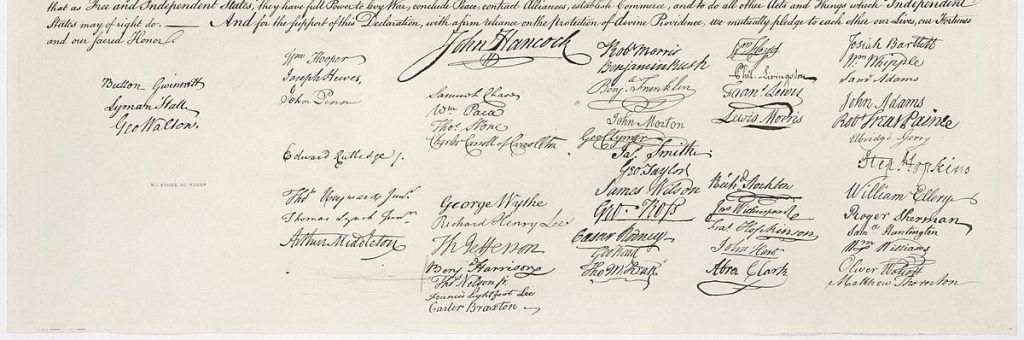 that as Free and Independent States, they have full Power to levy War, conclude Peace, contract Alliances, establish Commerce, and to do all other Acts and Things which Independent
States may of right do. — And for the support of this Declaration, with a firm reliance on the protection of divine Providence, we mutually pledge to each other our Lives, our Fortunes
and our sacred Honor.
Button Gwinnett
Lyman Hall
Geo Walton.
W. J. STONE SC. WASHN
Wm Hooper
Joseph Hewes,
John Penn
Edward Rutledge /.
Thos Heyward Junr.
Thomas Lynch Junr.
Arthur Middleton
John Hancock
Samuel Chase
Wm Paca
Thos Stone
Charles Carroll of Carrollton
George Wythe
Richard Henry Lee
Th Jefferson
Benj Harrison
Thos Nelson jr.
Francis Lightfoot Lee
Carter Braxton
Robt Morris
Benjamin Rush
Benj. Franklin
John Morton
Geo Clymer
Jas. Smith
Geo. Taylor
James Wilson
Geo. Ross
Caesar Rodney
Geo Read
Tho M:Kean
Wm Floyd
Phil. Livingston
Frans. Lewis
Lewis Morris
Richd. Stockton
Jno Witherspoon
Fras. Hopkinson
John Hart
Abra Clark
Josiah Bartlett
Wm Whipple
Saml Adams
John Adams
Robt Treat Paine
Elbridge Gerry
Step. Hopkins
William Ellery
Roger Sherman
Saml Huntington
Wm Williams
Oliver Wolcott
Matthew Thornton